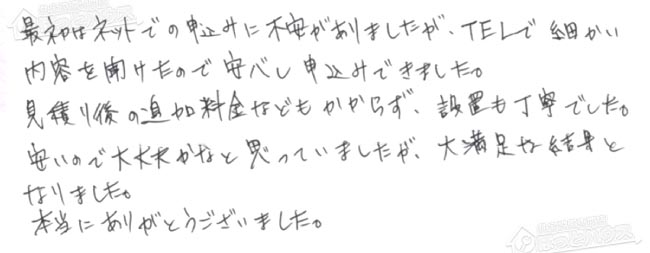 最初はネットでの申込みに不安がありましたが、TELで細かい
内容を聞けたので安心し申込みできました。
見積り後の追加料金などもかからず、設置も丁寧でした。
安いので大丈夫かなと思っていましたが、大満足な結果と
なりました。
本当にありがとうございました。